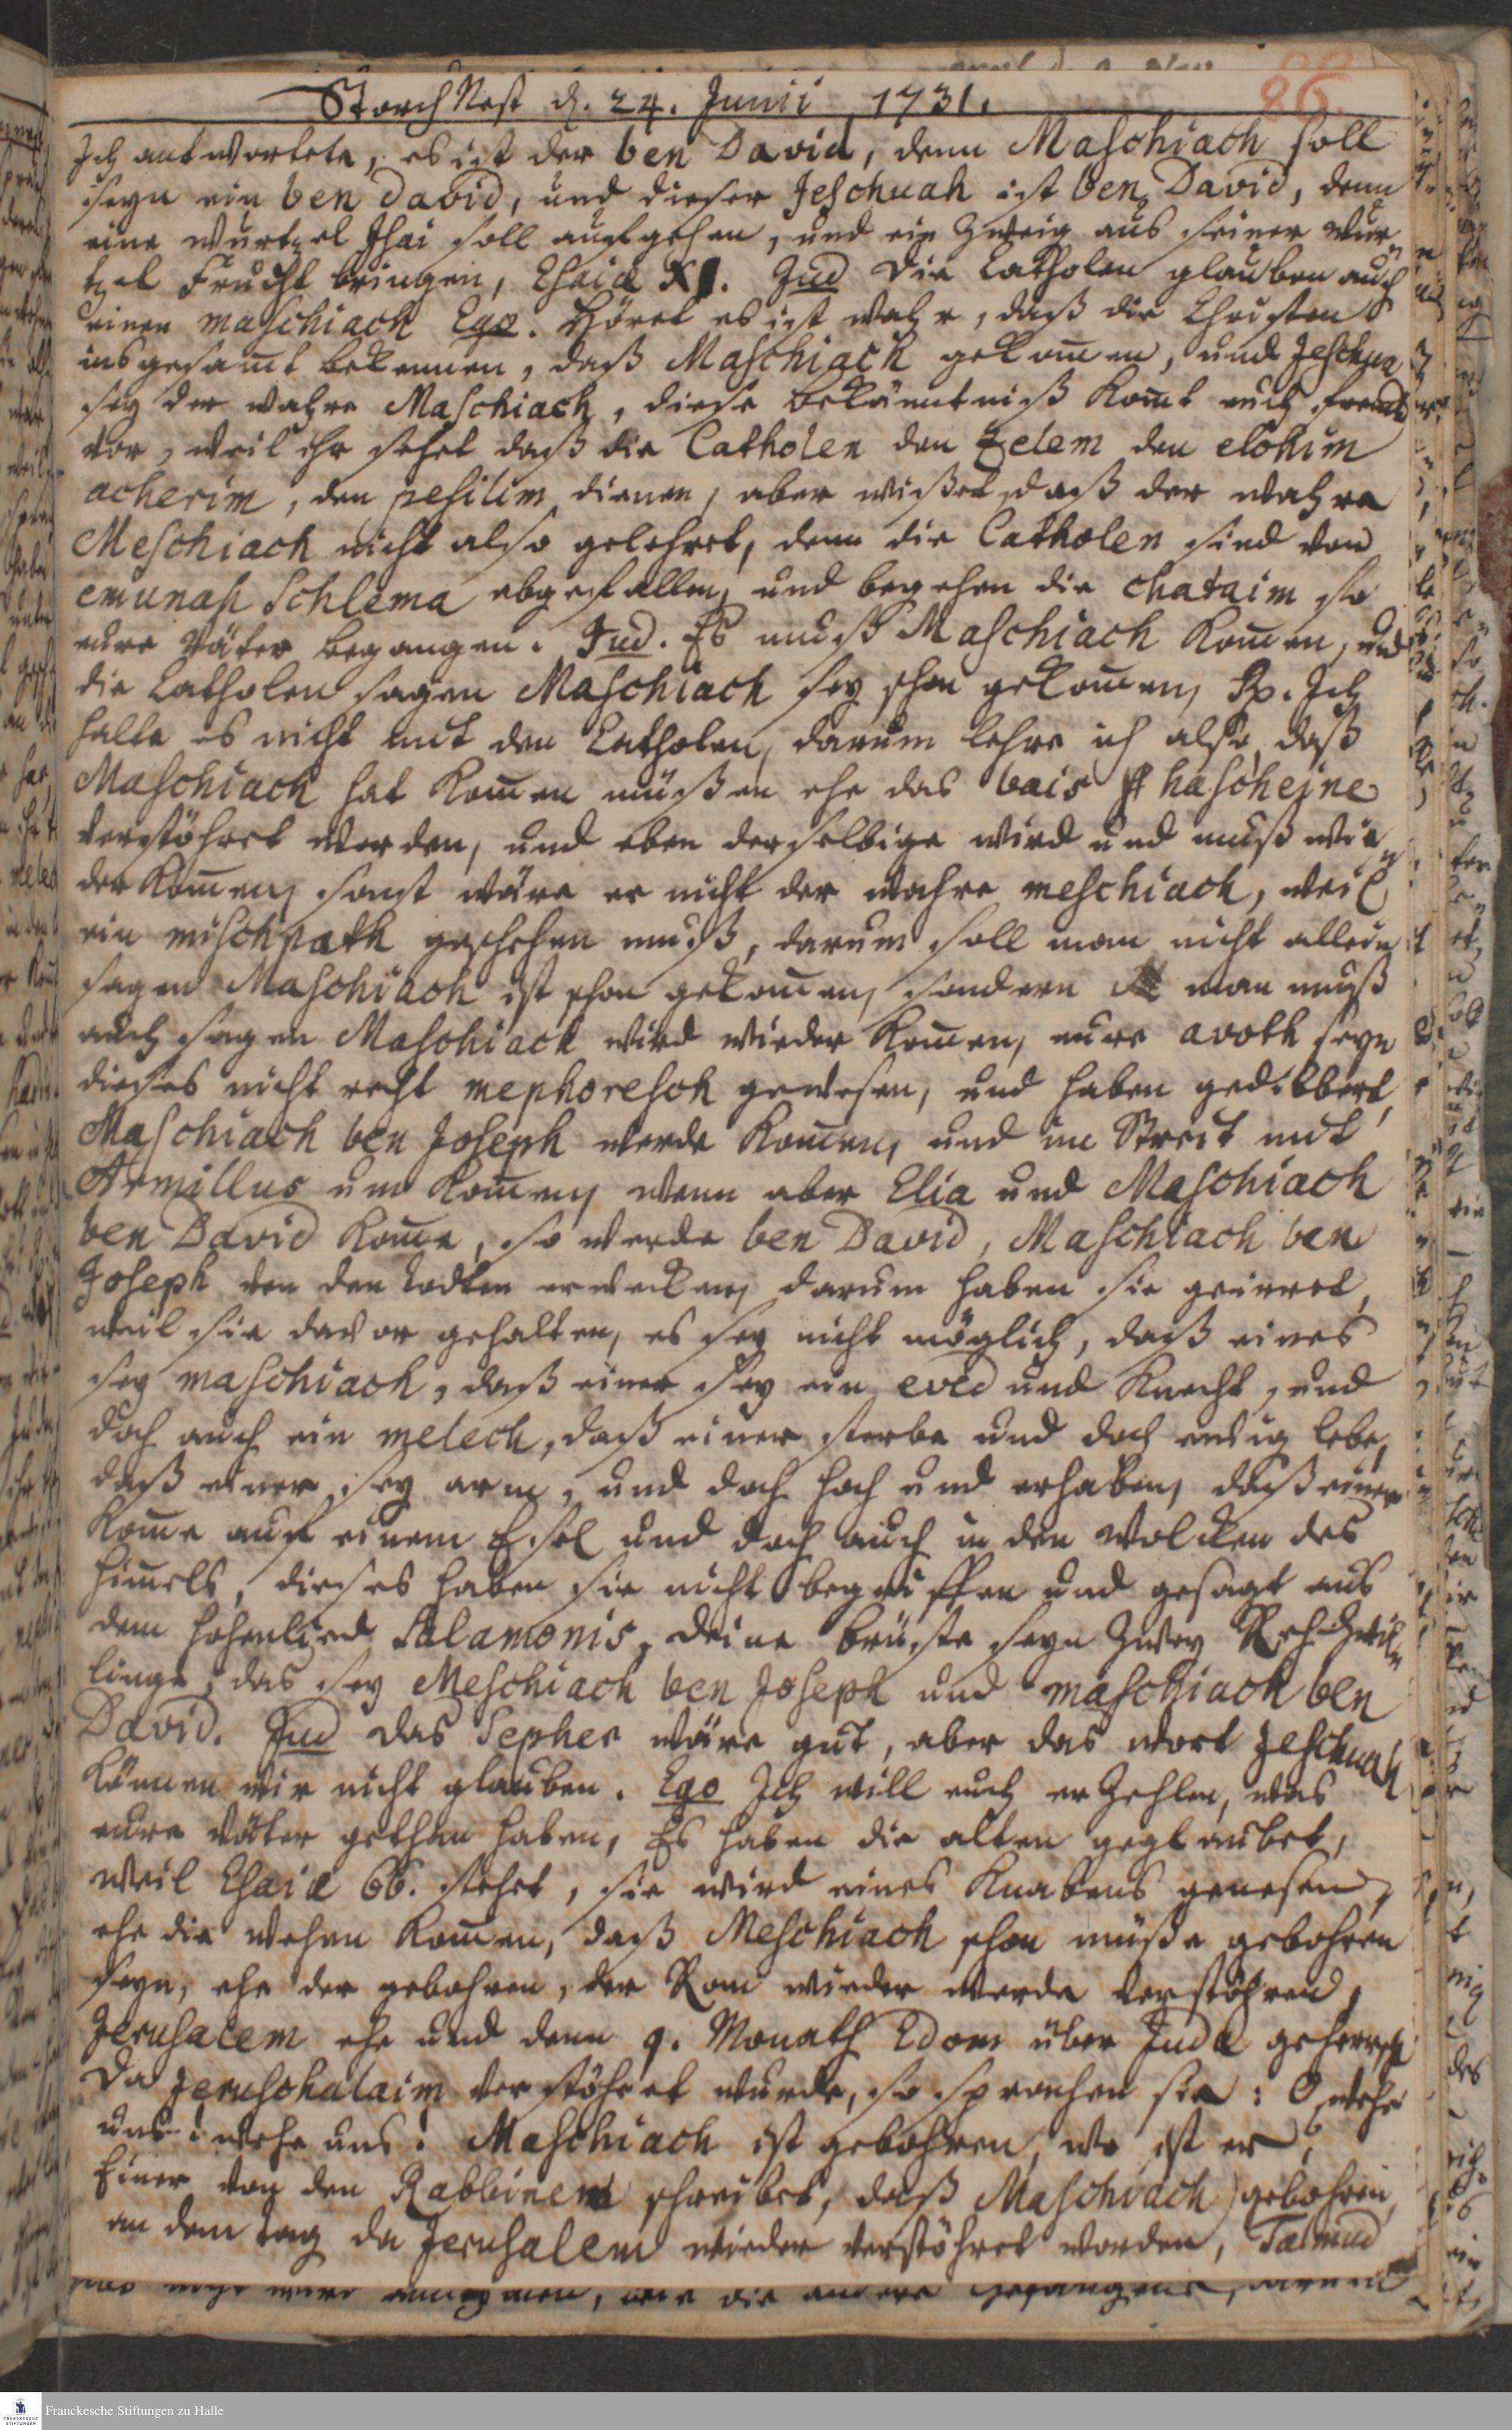 StorchNest d. 24. Junii 1731.
86.
Ich antwortete, es ist der ben David, denn Maschiach soll
seyn ein ben david, und dieser Jeschuah ist ben David, denn
eine Wurtzel Jsai soll aufgehen, und ein Zweig aus seiner Wur
tzel Frucht bringen, Esaiæ XI. Jud Die Catholen glauben auch
einen maschiach Ego. Höret es ist wahr, daß die Christen
insgesamt bekennen, daß Maschiach gekommen, und Jeschua
sey der wahre Maschiach, diese bekäntniß komt euch fremd
vor, weil ihr sehet daß die Catholen den Zelem den elohim
acherim, den pesilim dienen, aber wißet, daß der wahre
Meschiach nicht also gelehret, denn die Catholen sind von
emunah Schlema abgefallen, und begehen die chataim so
eure Väter begangen. Jud. Es muß Maschiach kommen, und
die Catholen sagen Maschiach sey schon gekommen, Rp. Ich
halte es nicht mit den Catholen, darum lehre ich also, daß
Maschiach hat kommen müßen ehe das bais haschejne
verstöhret worden, und eben derselbige wird und muß wie
der kommen, sonst wäre er nicht der wahre meschiach, weil
ein mischpath geschehen muß, darum soll man nicht allein
sagen Maschiach ist schon gekommen, sondern man muß
auch sagen Maschiach wird wieder kommen, eure avoth seyn
dieses nicht recht mephoresch gewesen, und haben gedibbert,
Maschiach ben Joseph werde kommen, und im Streit mit
Armillus um kommen, wenn aber Elia und Maschiach
ben David komme, so werde ben David, Maschiach ben
Joseph von den Todten erwecken, darum haben sie geirret,
weil sie davor gehalten, es sey nicht möglich, daß eines
sey maschiach, daß einer sey ein eved und Knecht, und
doch auch ein melech, daß einer sterbe und doch ewig lebe,
daß einer sey arm, und doch hoch und erhaben, daß einer
komme auf einem Esel und doch auch in den Wolcken des
Himmels, dieses haben sie nicht begriffen und gesagt aus
dem Hohenlied Salamonis, deine brüste seyn zwey Reh-Zwil
linge, das sey Meschiach ben Joseph und maschiach ben
David. Jud Das Sepher wäre gut, aber das wort Jeschuah
können wir nicht glauben. Ego Ich will euch erzehlen, was
eure Väter gethan haben, Es haben die alten geglaubet,
weil Esaiæ 66. stehet, sie wird eines Knabens genesen,
ehe die wehen kommen, daß Meschiach schon müße gebohren
seyn, ehe der gebohren, der Rom wieder werde verstöhren,
Jerusalem ehe und denn 9. Monath Edom über Juda geherrsch
Da Jeruschalaim verstöhret wurde, so sprachen sie: O wehe
uns! wehe uns! Maschiach ist gebohren, wo ist er?
Einer von den Rabbinen schreibet, daß Maschiach gebohren,
an dem Tag da Jerusalem wieder verstöhret worden, Talmud
Franckesche Stiftungen zu Halle